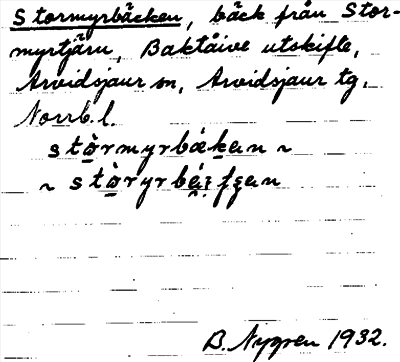 Stormyrbäcken, bäck från Stor-
myrtjärn, Baktåive utskifte,
Arvidsjaur sn, Arvidsjaur tg,
Norrb. l.
stò̱rmyrbáḵan ~
~ stò̱ryrbá̱
B. Nygren 1932.